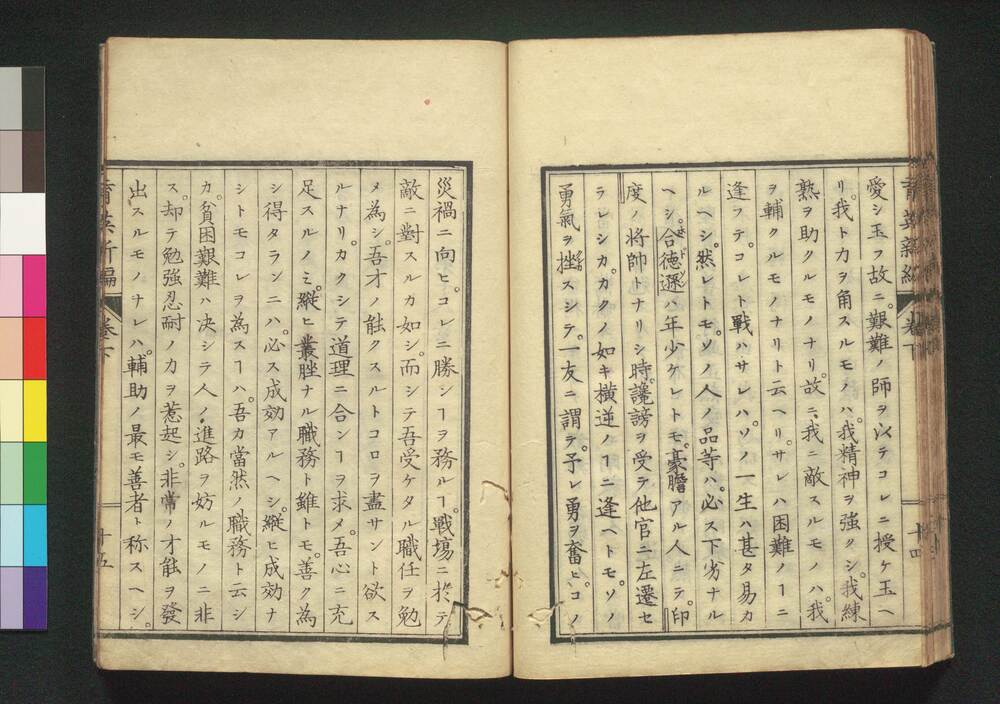 愛シ玉フ故ニ。艱難ノ師ヲ以テコレニ授ケ玉ヘ
リ。我ト力ヲ角スルモノハ。我精神ヲ強クシ。我練
熟ヲ助クルモノナリ。故ニ我ニ敵スルモノハ。我
ヲ輔クルモノナリト云ヘリ。サレハ困難ノヿニ
逢フテ。コレト戰ハサレハ。ソノ一生ハ甚タ易カ
ルヘシ。然レトモ。ソノ人ノ品等ハ。必ス下劣ナル
ヘシ。合徳遜ハ年少ケレトモ。豪膽アル人ニテ。印
度ノ將帥トナリシ時。讒謗ヲ受テ他官ニ左遷セ
ラレシカ。カクノ如キ横逆ノヿニ逢ヘトモ。ソノ
勇氣ヲ挫スシテ。一友ニ謂テ。予レ勇ヲ奮ヒ。コノ
育英新編 卷下 十四
災禍ニ向ヒ。コレニ勝シヿヲ務ルヿ。戰塲ニ於テ
敵ニ對スルカ如シ。而シテ吾受ケタル職任ヲ勉
メ為シ。吾才ノ能クスルトコロヲ盡サント欲ス
ルナリ。カクシテ道理ニ合ンヿヲ求メ。吾心ニ充
足スルノミ。縱ヒ叢脞ナル職務ト雖トモ。善ク為
シ得タランニハ。必ス成効アルヘシ。縱ヒ成効ナ
シトモコレヲ為スヿハ。吾カ當然ノ職務ト云シ
カ。貧困艱難ハ决シテ人ノ進路ヲ妨ルモノニ非
ス。却テ勉強忍耐ノ力ヲ惹起シ。非常ノ才能ヲ發
出スルモノナレハ。輔助ノ最モ善者ト称スヘシ。
育英新編 卷下 十五